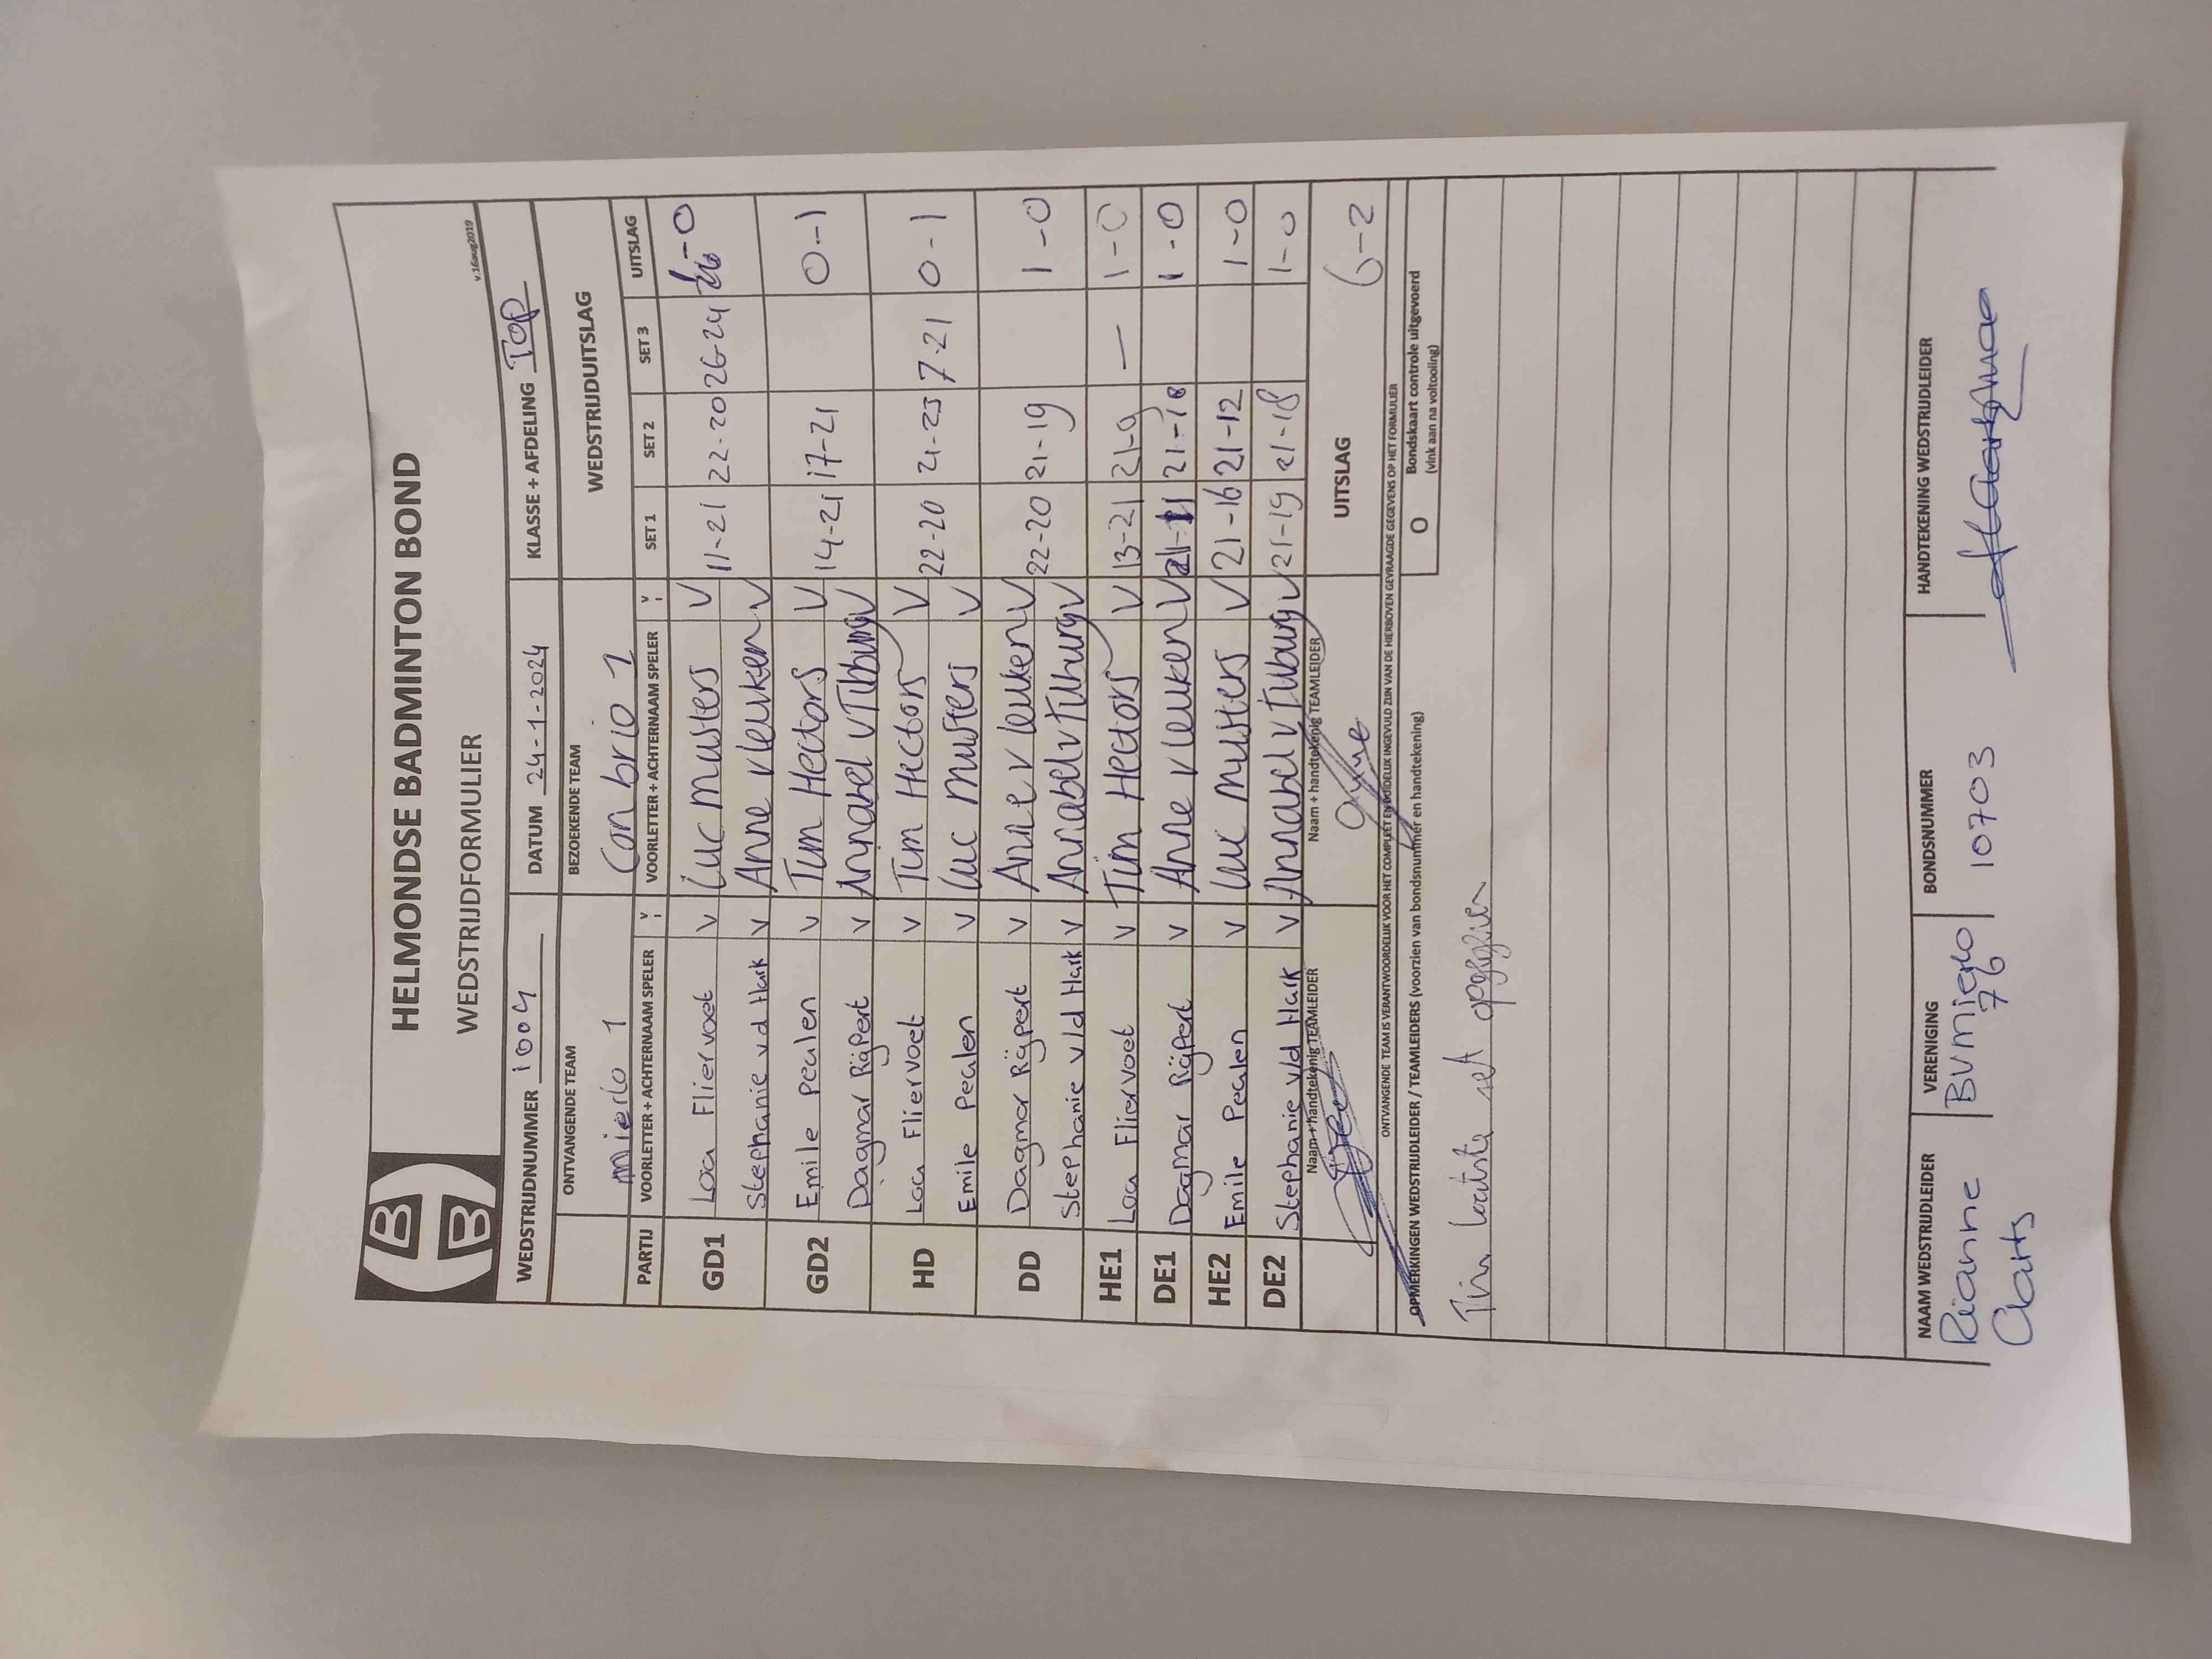 HELMONDSE BADMINTON BOND
WEDSTRIJDFORMULIER
v.16aug2019
WEDSTRIJDNUMMER 1004 DATUM 24-1-2024 KLASSE + AFDELING TOP
ONTVANGENDE TEAM BEZOEKENDE TEAM WEDSTRIJDUITSLAG
mierlo 1 Conbrio 1
PARTIJ VOORLETTER + ACHTERNAAM SPELER V VOORLETTER + ACHTERNAAM SPELER V SET 1 SET 2 SET 3 UITSLAG
GD1 Loa Fliervoet V Luc Musters V 11-21 22-20 26-24 1-0
Stephanie v d Hark V Anne v Leuken V
GD2 Emile Pealen V Tim Hectors V 14-21 17-21 0-1
Dagmar Rijpert V Annabel v Tilburg V
HD Loa Fliervoet V Tim Hectors V 22-20 21-23 7-21 0-1
Emile Pealen V Luc Musters V
DD Dagmar Rijpert V Anne v Leuken V 22-20 21-19 1-0
Stephanie v/d Hark V Annabel v Tilburg V
HE1 Loa Fliervoet V Tim Hectors V 13-21 21-9 — 1-0
DE1 Dagmar Rijpert V Anne v Leuken V 21-11 21-18 1-0
HE2 Emile Pealen V Luc Musters V 21-16 21-12 1-0
DE2 Stephanie v/d Hark V Annabel v Tilburg V 21-19 21-18 1-0
Naam + handtekenig TEAMLEIDER Naam + handtekenig TEAMLEIDER UITSLAG 6-2
Anne
ONTVANGENDE TEAM IS VERANTWOORDELIJK VOOR HET COMPLEET EN DUIDELIJK INGEVULD ZIJN VAN DE HIERBOVEN GEVRAAGDE GEGEVENS OP HET FORMULIER
OPMERKINGEN WEDSTRIJDLEIDER / TEAMLEIDERS (voorzien van bondsnummer en handtekening) O Bondskaart controle uitgevoerd
(vink aan na voltooiing)
Tim laatste set opgegeven
NAAM WEDSTRIJDLEIDER VERENIGING BONDSNUMMER HANDTEKENING WEDSTRIJDLEIDER
Rianne BVMierlo 10703
Claris 76